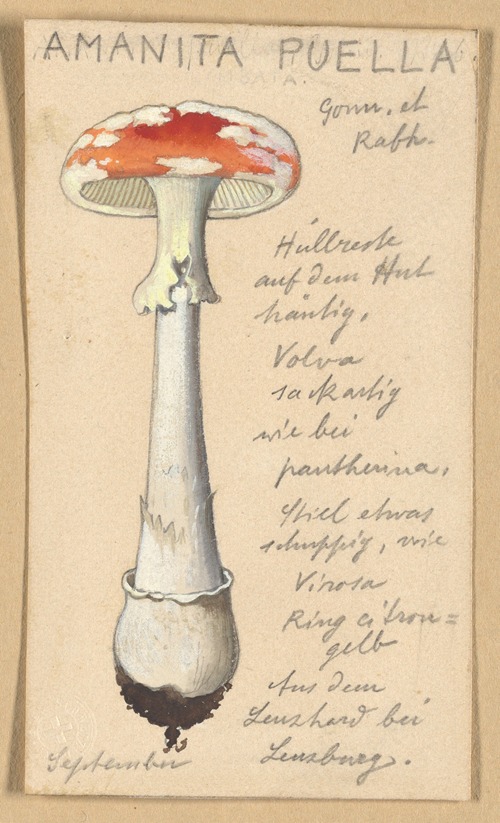 AMANITA PUELLA
Gonn. et
Rabh.
Hüllreste
auf dem Hut
häutig,
Volva
sackartig
wie bei
pantherina,
Stiel etwas
schuppig, wie
Virosa
Ring citron=
gelb
Aus dem
Lenzhard bei
Lenzburg.
September